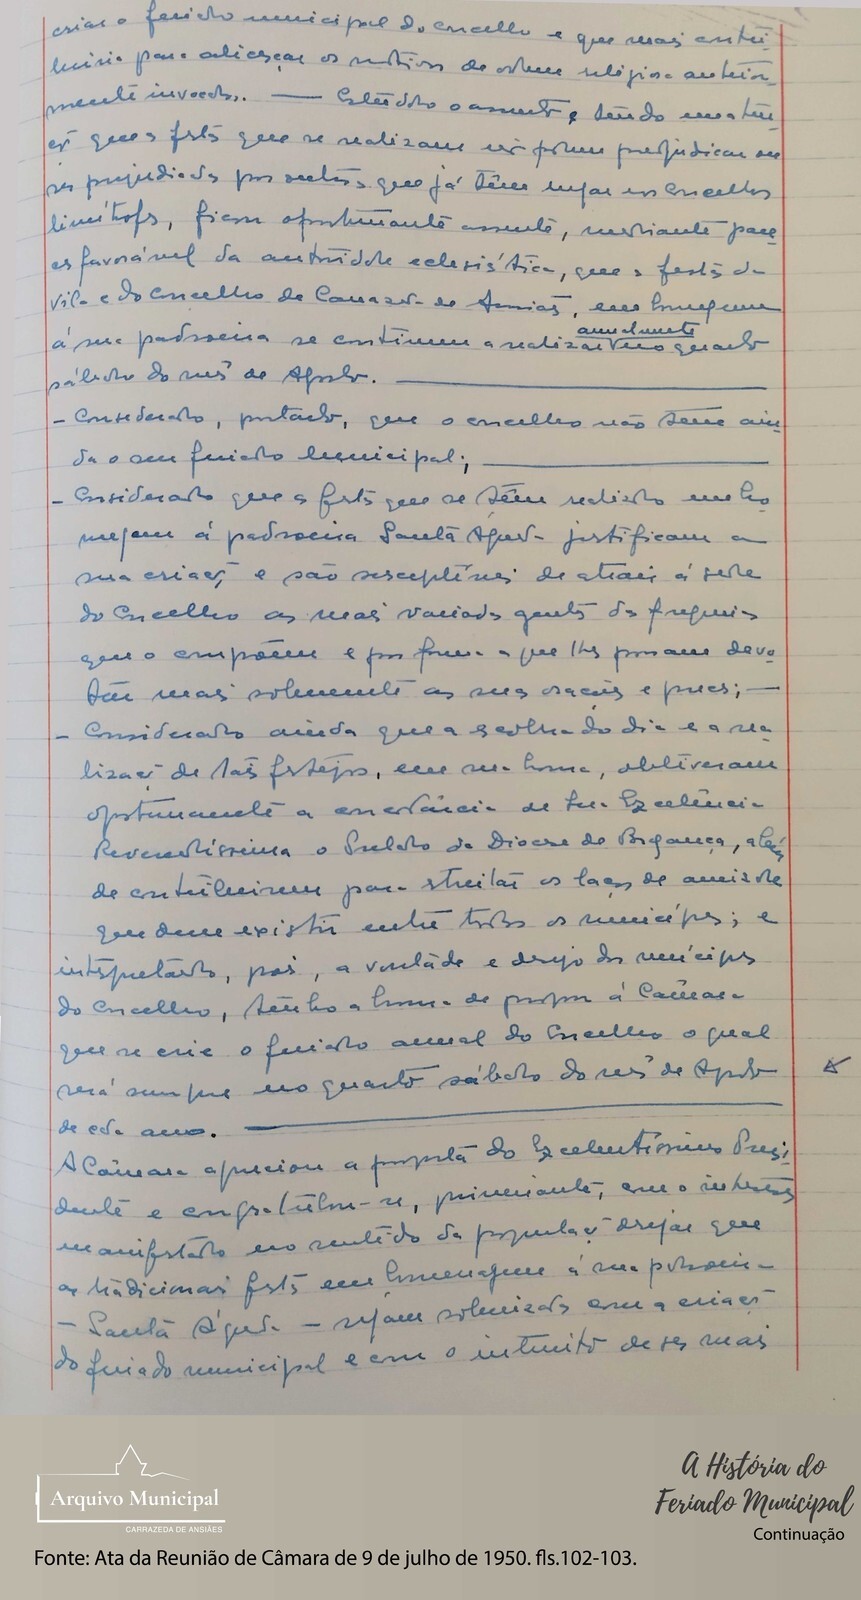 criar o feriado municipal do concelho e que mais contri-
buiria para alicerçar os motivos de ordem religiosa anterior-
mente invocados. — Estudado o assunto e tendo em aten-
ção que as festas que se realizam não podem prejudicar ou
ser prejudicadas por outras que já têm lugar nos concelhos
limítrofes, ficou oportunamente assente, mediante pare-
cer favorável da autoridade eclesiástica, que as festas da
vila e do concelho de Carrazeda de Ansiães, em homenagem
á sua padroeira se continuem a realizar anualmente no quarto
sábado do mês de Agosto.
- Considerando, portanto, que o concelho não tem ain-
da o seu feriado municipal;
- Considerando que as festas que se têm realizado em ho-
menagem á padroeira Santa Águeda justificam a
sua criação e são susceptíveis de atrair á sede
do concelho as mais variadas gentes das freguesias
que o compõem e por forma a que lhes possam devo-
tar mais solenemente as suas orações e preces; —
- Considerando ainda que a escolha do dia e a rea-
lização de tais festejos, em sua honra, obtiveram
oportunamente a concordância de Sua Excelência
Reverendíssima o Prelado da Diocese de Bragança, além
de contribuirem para estreitar os laços de amizade
que deve existir entre todos os munícipes; e
interpretando, pois, a vontade e desejo dos munícipes
do concelho, tenho a honra de propor á Câmara
que se crie o feriado anual do Concelho o qual
será sempre no quarto sábado do mês de Agosto
de cada ano.
A Câmara apreciou a proposta do Excelentíssimo Presi-
dente e congratulou-se, primeiramente, com o interesse
manifestado no sentido da população desejar que
as tradicionais festas em homenagem á sua padroeira
— Santa Águeda — sejam solenizadas com a criação
do feriado municipal e com o intuito de ser mais
Arquivo Municipal
CARRAZEDA DE ANSIÃES
A História do
Feriado Municipal
Continuação
Fonte: Ata da Reunião de Câmara de 9 de julho de 1950. fls.102-103.